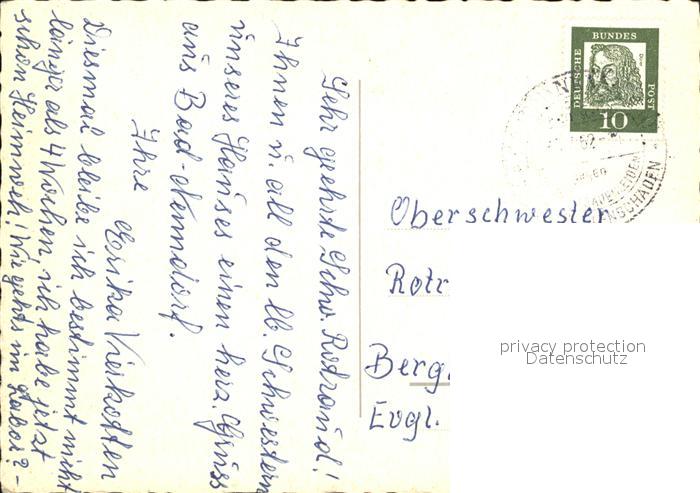 Sehr geehrte Schw. Rotraud!
Ihnen u. all den lb. Schwestern
unseres Hauses einen herz. Gruss
aus Bad-Nenndorf.
Ihre
Erika Vierkotten
Diesmal bleibe ich bestimmt nicht
länger als 4 Wochen, ich habe jetzt
schon Heimweh! Wie gehts im Labor? -
DEUTSCHE
BUNDES
POST
Dürer
10
62
NSCHÄDEN
Oberschwester
Rotr
Berg.
Evgl.
privacy protection
Datenschutz